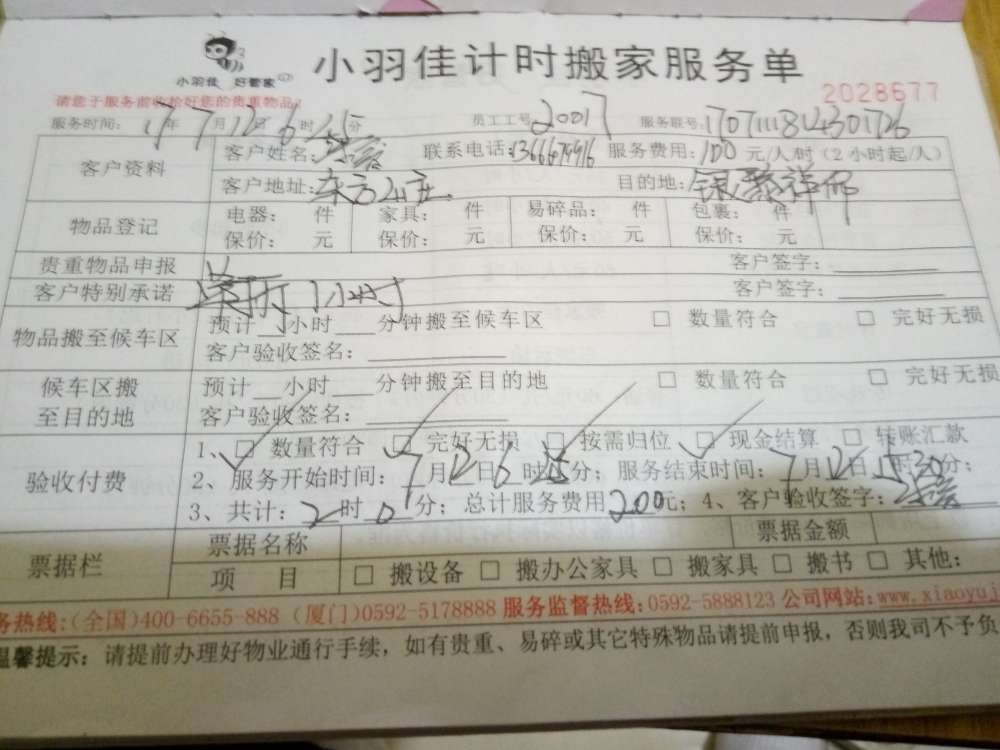 小羽佳 好管家
小羽佳计时搬家服务单
请您于服务前收拾好您的贵重物品!
2028677
服务时间: 17年7月12日6时25分 员工工号20017 服务联号:
客户资料 客户姓名: 联系电话: 服务费用:100元/人/时(2小时起/人)
客户地址:东方山庄 目的地:银泰祥邸
物品登记 电器: 件 家具: 件 易碎品: 件 包裹: 件
保价: 元 保价: 元 保价: 元 保价: 元
贵重物品申报 客户签字:
客户特别承诺 单折 1小时 客户签字:
物品搬至候车区 预计__小时___分钟搬至候车区 □ 数量符合 □ 完好无损
客户验收签名:
候车区搬至目的地 预计__小时___分钟搬至目的地 □ 数量符合 □ 完好无损
客户验收签名:
验收付费 1、□ 数量符合 □ 完好无损 □ 按需归位 □ 现金结算 □ 转账汇款
2、服务开始时间:7月12日6时25分;服务结束时间:7月12日 时30分;
3、共计:2时0分;总计服务费用200元;4、客户验收签字:
票据栏 票据名称 票据金额
项 目 □ 搬设备 □ 搬办公家具 □ 搬家具 □ 搬书 □ 其他:
务热线:(全国)400-6655-888 (厦门)0592-5178888 服务监督热线:0592-5888123 公司网站:www.xiaoyuj
温馨提示:请提前办理好物业通行手续,如有贵重、易碎或其它特殊物品请提前申报,否则我司不予负